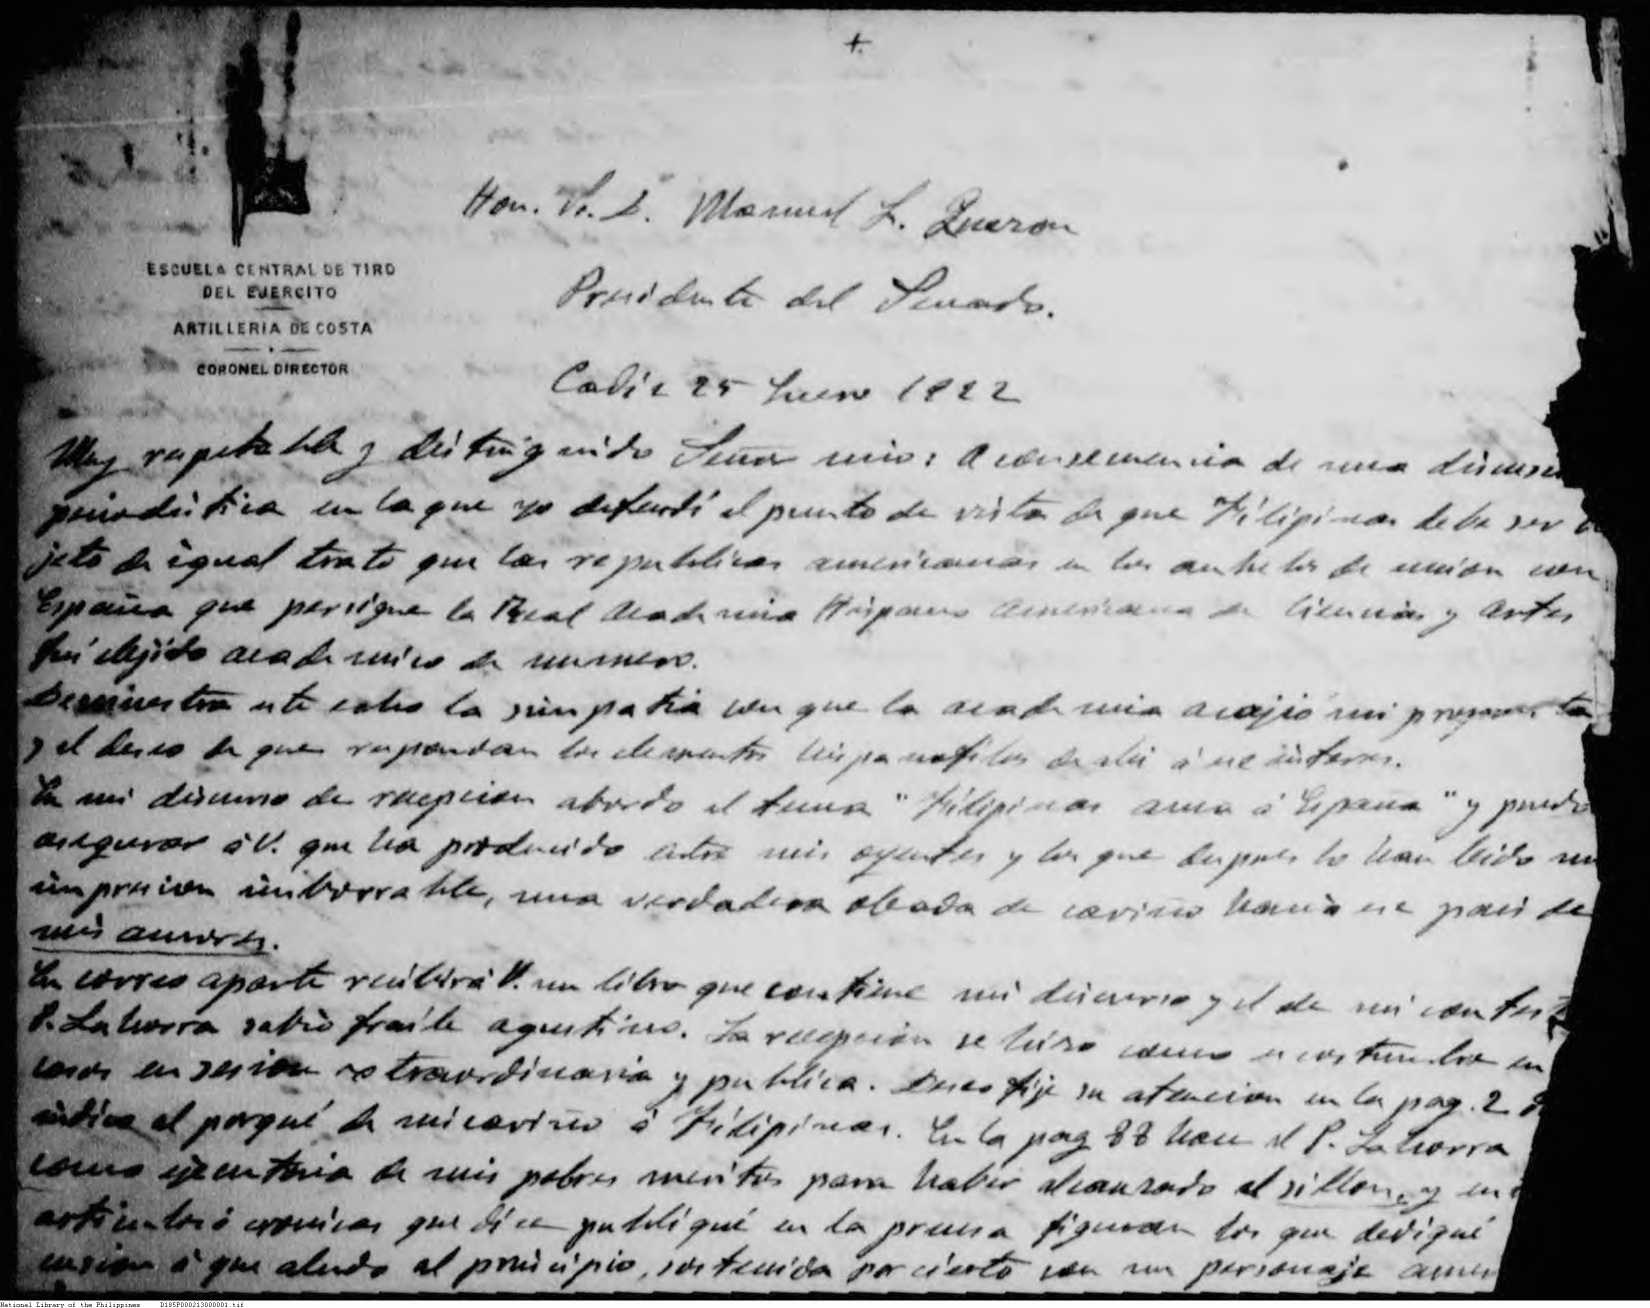 +
Hon. Sr. D. Manuel L. Quezon
ESCUELA CENTRAL DE TIRO
DEL EJERCITO
ARTILLERIA DE COSTA
CORONEL DIRECTOR
Presidente del Senado.
Cadiz 25 Enero 1922
Muy respetable y distinguido Señor mio: A consecuencia de una discusi
periodistica en la que yo defendí el punto de vista de que Filipinas debe ser
jeto de igual trato que las republicas americanas en los anhelos de union con
España que persigue la Real Academia Hispano Americana de Ciencias y Artes
fuí elejido academico de numero.
Demuestra este exito la simpatia con que la academia acojió mi propuesta
y el deseo de que respondan los elementos hispanofilos de ahi á ese interes.
En mi discurso de recepcion abordo el tema "Filipinas ama á España" y puedo
asegurar á V. que ha producido entre mis oyentes y los que despues lo han leido un
impresion imborrable, una verdadera oleada de cariño hacia ese pais de
mis amores.
En correo aparte recibirá V. un libro que contiene mi discurso y el de mi contest
P. Lahorra sabio fraile agustino. La recepcion se hizo como es costumbre en
casos en sesion extraordinaria y publica. Deseo fije su atencion en la pag. 2
indica el porqué de mi cariño á Filipinas. En la pag 88 hace el P. Lahorra
como ejecutoria de mis pobres meritos para haber alcanzado el sillon, y en
articulos ó cronicas que dice publiqué en la prensa figuran los que dediqué
cusion á que aludo al principio, sostenida por cierto con un personaje amer
National Library of the Philippines D185P000213000001.tif